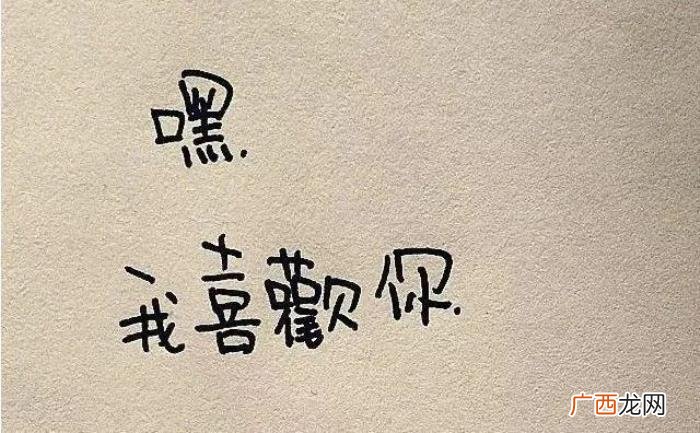 嘿.
我喜歡你.
广西龙网